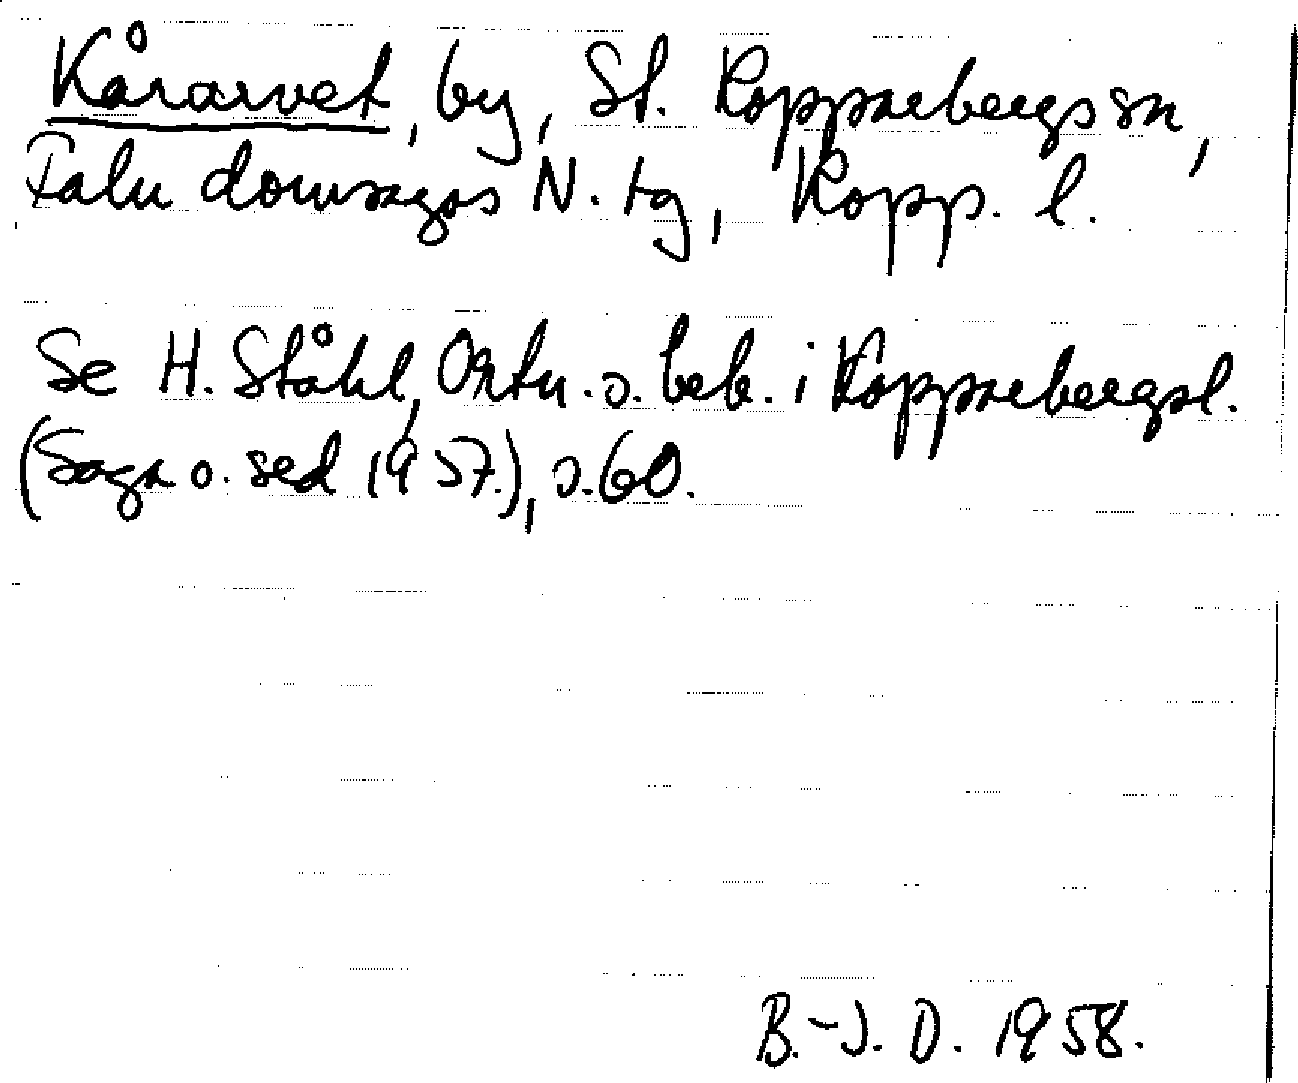 Kårarvet, by, St. Kopparbergs sn,
Falu domsagas N. tg, Kopp. l.
Se H. Ståhl, Ortn. o. beb. i Kopparbergsl.
(Saga o. sed 1957.), s. 60.
B.-J. D. 1958.